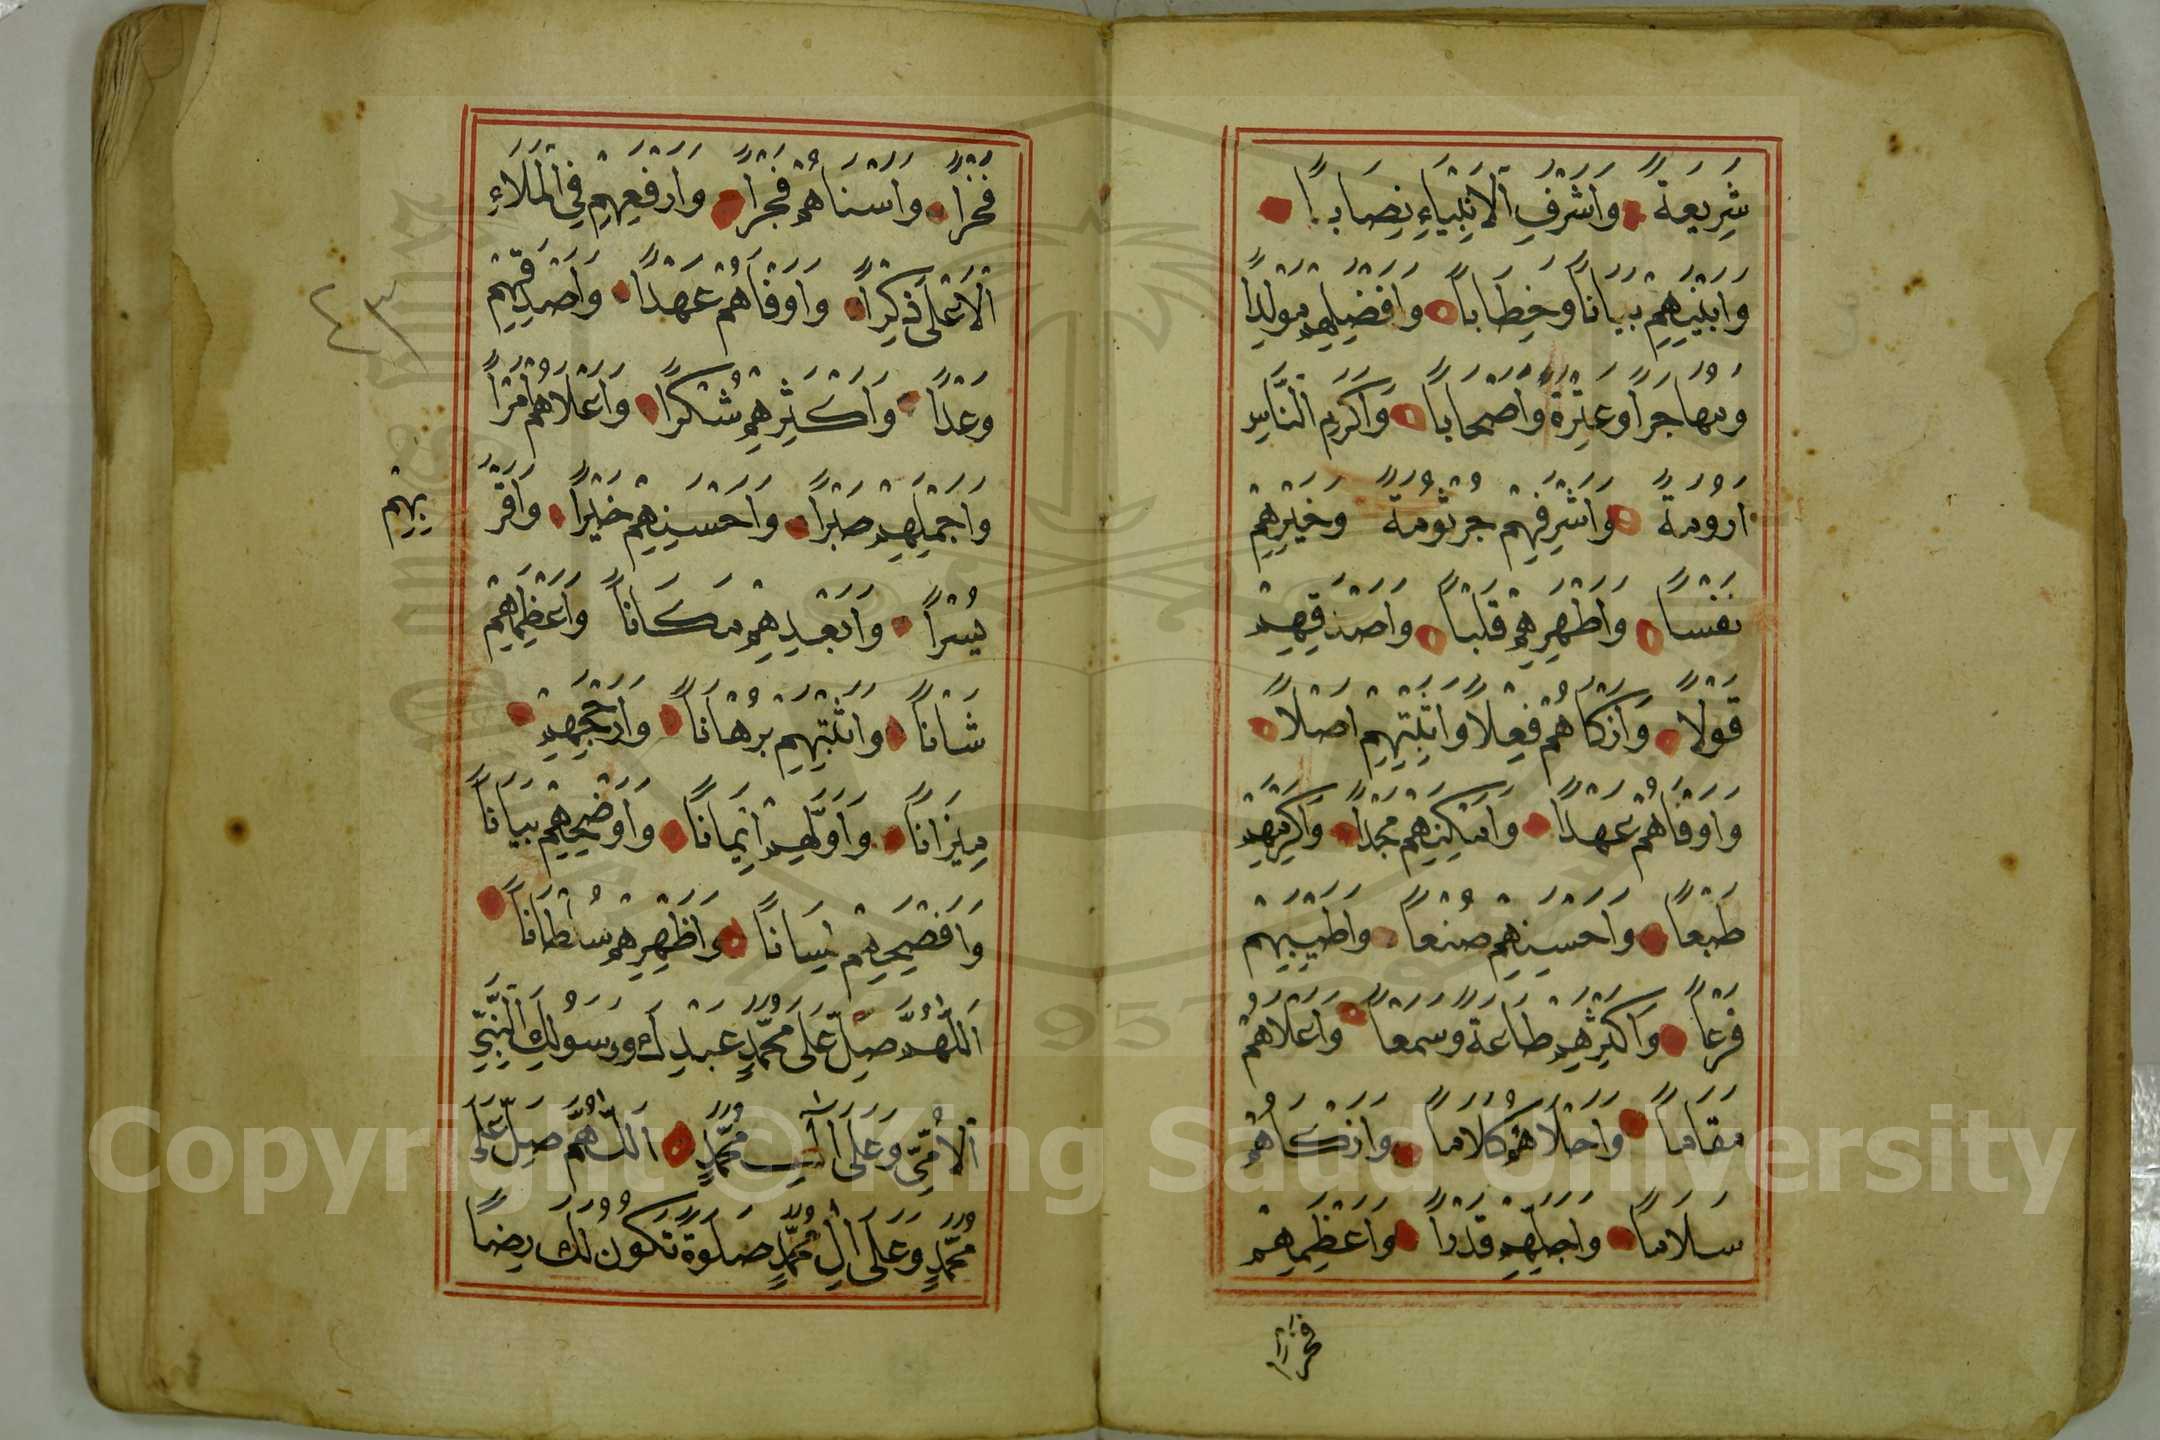 شَرِيعَةً وَاَشْرَفِ الْاَنْبِيَاءِ نِصَابًا
وَاَبْيَنِهِمْ بَيَانًا وَخِطَابًا وَاَفْضَلِهِمْ مَوْلِدًا
وَمُهَاجَرًا وَعِتْرَةً وَاَصْحَابًا وَاَكْرَمِ النَّاسِ
اَرُومَةً وَاَشْرَفِهِمْ جُرْثُومَةً وَخَيْرِهِمْ
نَفْسًا وَاَطْهَرِهِمْ قَلْبًا وَاَصْدَقِهِمْ
قَوْلًا وَاَزْكَاهُمْ فِعْلًا وَاَثْبَتِهِمْ اَصْلًا
وَاَوْفَاهُمْ عَهْدًا وَاَمْكَنِهِمْ مَجْدًا وَاَكْرَمِهِمْ
طَبْعًا وَاَحْسَنِهِمْ صُنْعًا وَاَطْيَبِهِمْ
فَرْعًا وَاَكْثَرِهِمْ طَاعَةً وَسَمْعًا وَاَعْلَاهُمْ
مَقَامًا وَاَحْلَاهُمْ كَلَامًا وَاَزْكَاهُمْ
سَلَامًا وَاَجَلِّهِمْ قَدْرًا وَاَعْظَمِهِمْ
فخرا
فَخْرًا وَاَسْنَاهُمْ فَخْرًا وَاَرْفَعِهِمْ فِي الْمَلَاءِ
الْاَعْلَى ذِكْرًا وَاَوْفَاهُمْ عَهْدًا وَاَصْدَقِهِمْ
وَعْدًا وَاَكْثَرِهِمْ شُكْرًا وَاَعْلَاهُمْ اَمْرًا
وَاَجْمَلِهِمْ صَبْرًا وَاَحْسَنِهِمْ خَيْرًا وَاَقْرَ بِهِمْ
يُسْرًا وَاَبْعَدِهِمْ مَكَانًا وَاَعْظَمِهِمْ
شَانًا وَاَثْبَتِهِمْ بُرْهَانًا وَاَرْجَحِهِمْ
مِيزَانًا وَاَوَّلِهِمْ اِيمَانًا وَاَوْضَحِهِمْ بَيَانًا
وَاَفْصَحِهِمْ لِسَانًا وَاَظْهَرِهِمْ سُلْطَانًا
اَللّٰهُمَّ صَلِّ عَلَى مُحَمَّدٍ عَبْدِكَ وَرَسُولِكَ النَّبِيِّ
الْاُمِّيِّ وَعَلَى اٰلِ مُحَمَّدٍ اَللّٰهُمَّ صَلِّ عَلَى
مُحَمَّدٍ وَعَلَى اٰلِ مُحَمَّدٍ صَلٰوةً تَكُونُ لَكَ رِضًا
٤٣
Copyright © King Saud University
1957